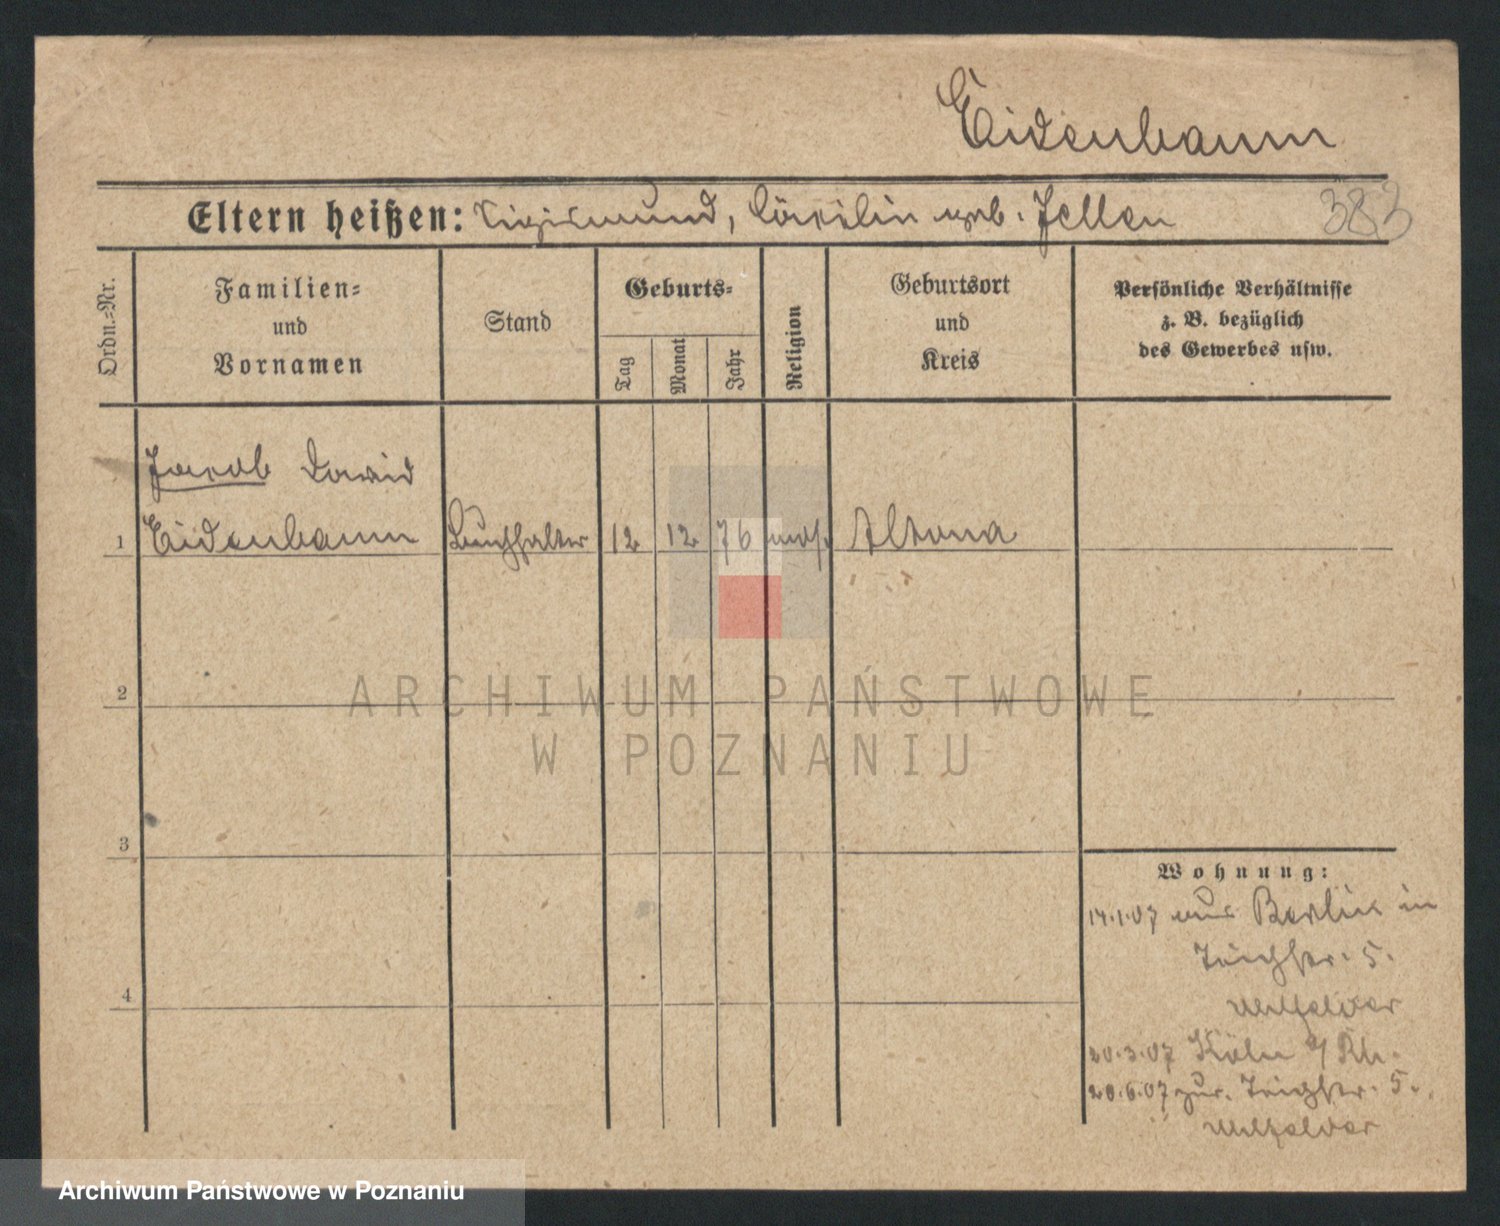 Eidenbaum
Eltern heißen: Sigismund, Cäcilie geb. Jellen
383
Ordn.=Nr.
Familien=
und
Vornamen
Stand
Geburts=
Tag
Monat
Jahr
Religion
Geburtsort
und
Kreis
Persönliche Verhältnisse
z. B. bezüglich
des Gewerbes usw.
Jacob David
1 Eidenbaum Buchhalter 12 12 76 mos. Altona
2
ARCHIWUM PAŃSTWOWE
W POZNANIU
3
Wohnung:
14.1.07 aus Berlin in
Teichstr. 5.
20.3.07 Köln a/Rh.
20.6.07 zur. Teichstr. 5.
4
Archiwum Państwowe w Poznaniu